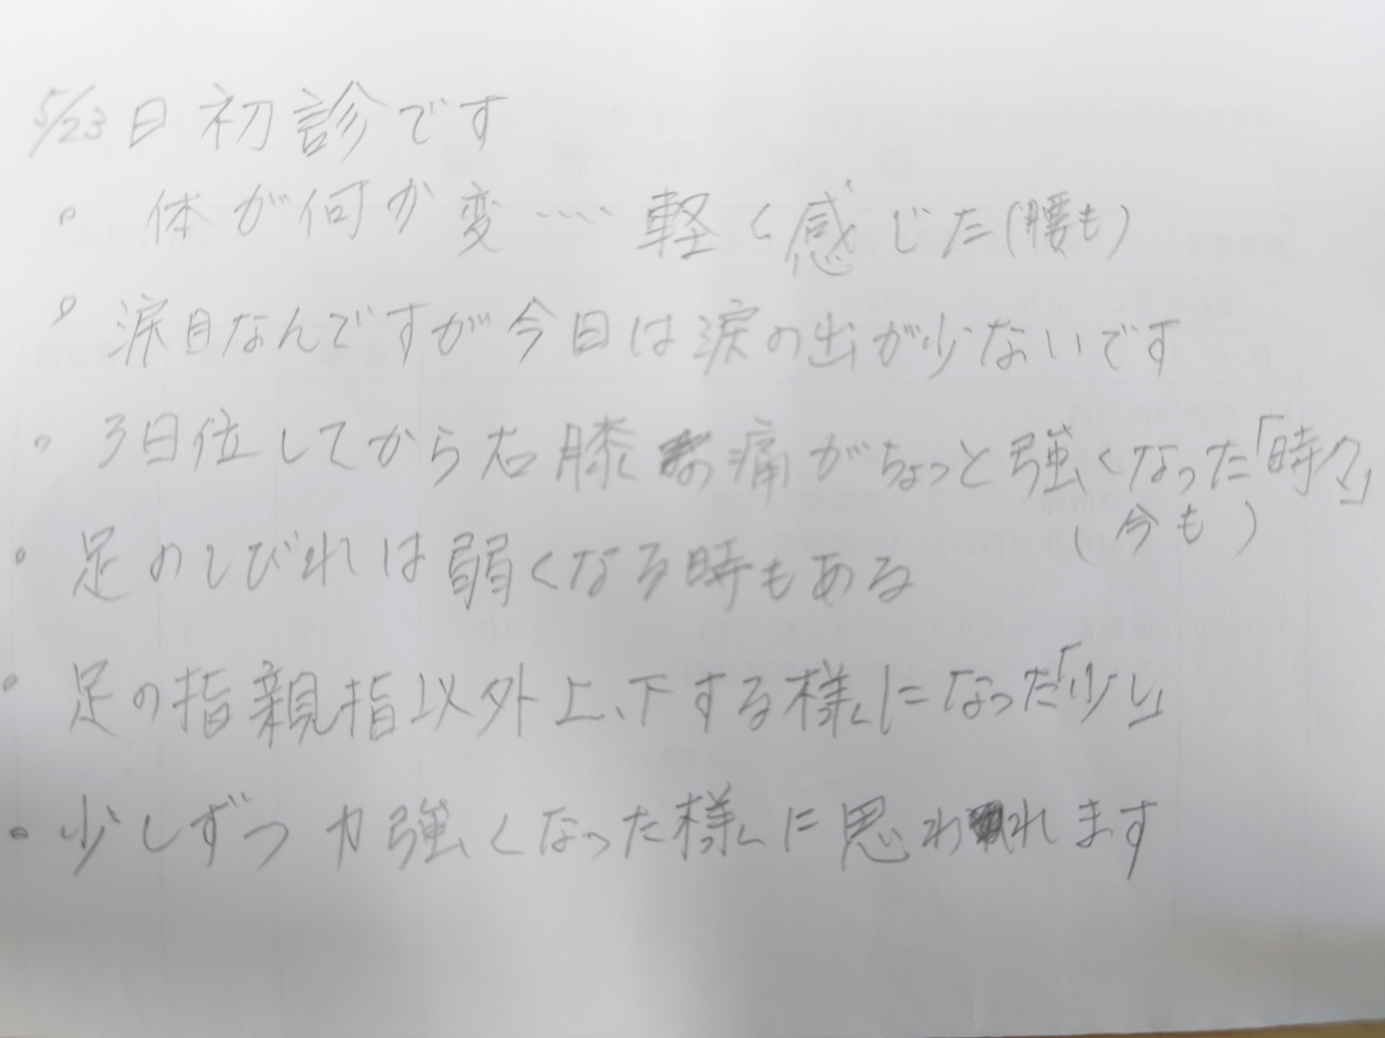 5/23日 初診です
・ 体が何か変‥‥軽く感じた(腰も)
・ 涙目なんですが今日は涙の出が少ないです
・ 3日位してから右膝の痛がちょっと強くなった「時々」
(今も)
・ 足のしびれは弱くなる時もある
・ 足の指親指以外上、下する様になった「少し」
・ 少しずつ力強くなった様に思われます